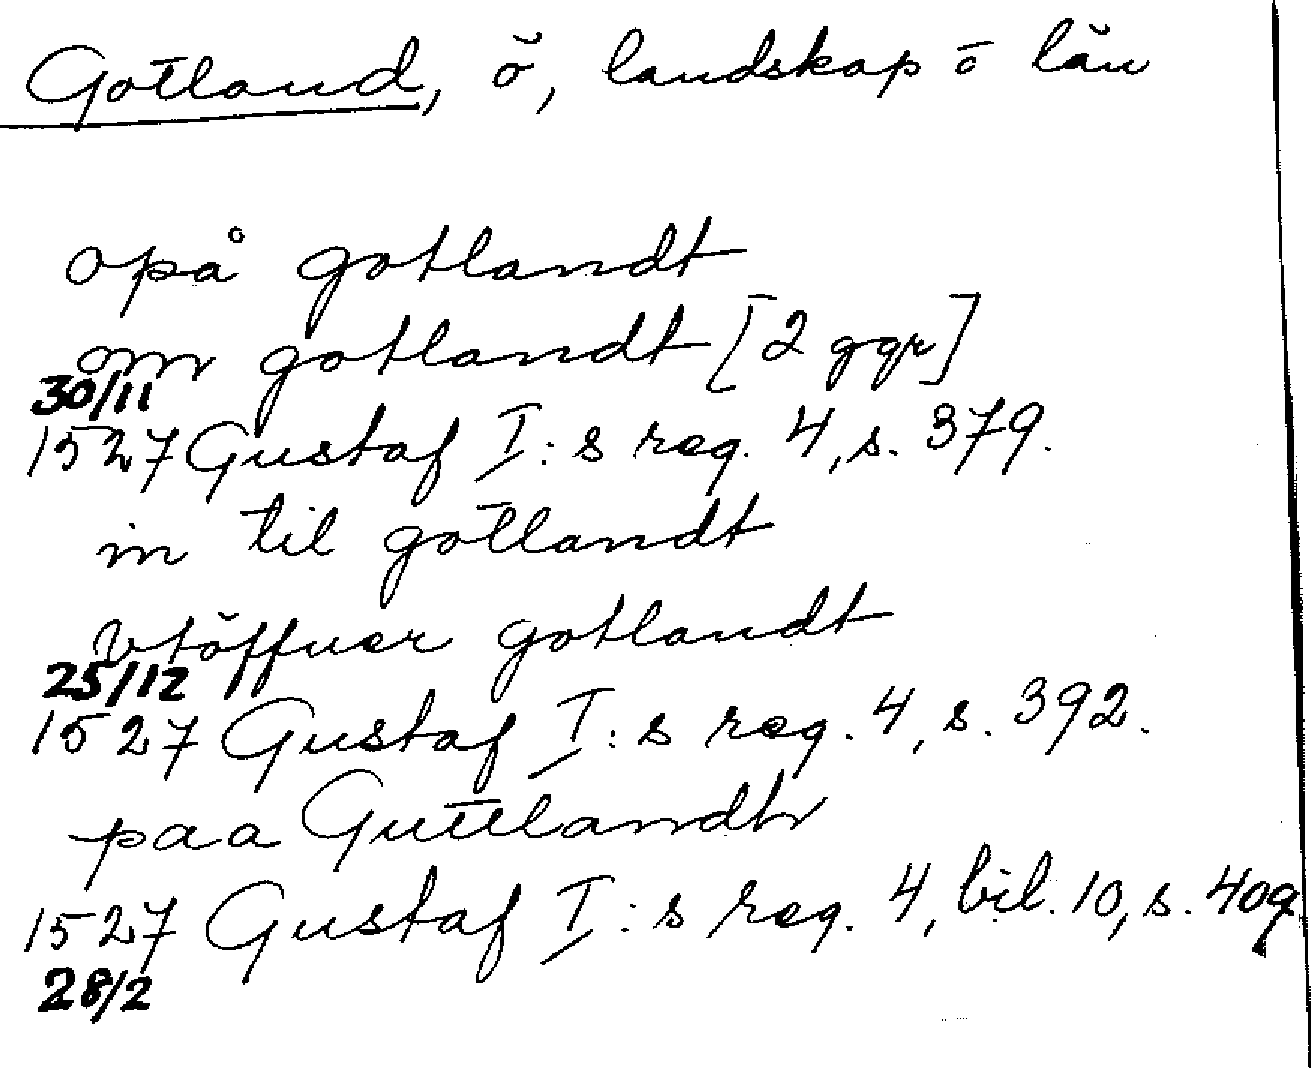 Gotland, ö, landskap o län
opå gotlandt
om gotlandt [2 ggr]
30/11
1527 Gustaf I:s reg. 4, s. 379.
in til gotlandt
vtöffuer gotlandt
25/12
1527 Gustaf I:s reg. 4, s. 392.
paa Guttlandh
1527 Gustaf I:s reg. 4, bil. 10, s. 409.
28/2